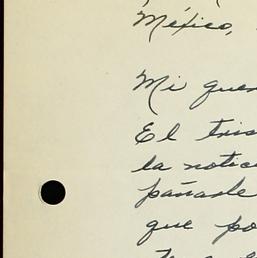 México,
Mi quer
El tris
la notici
pañarle
que po